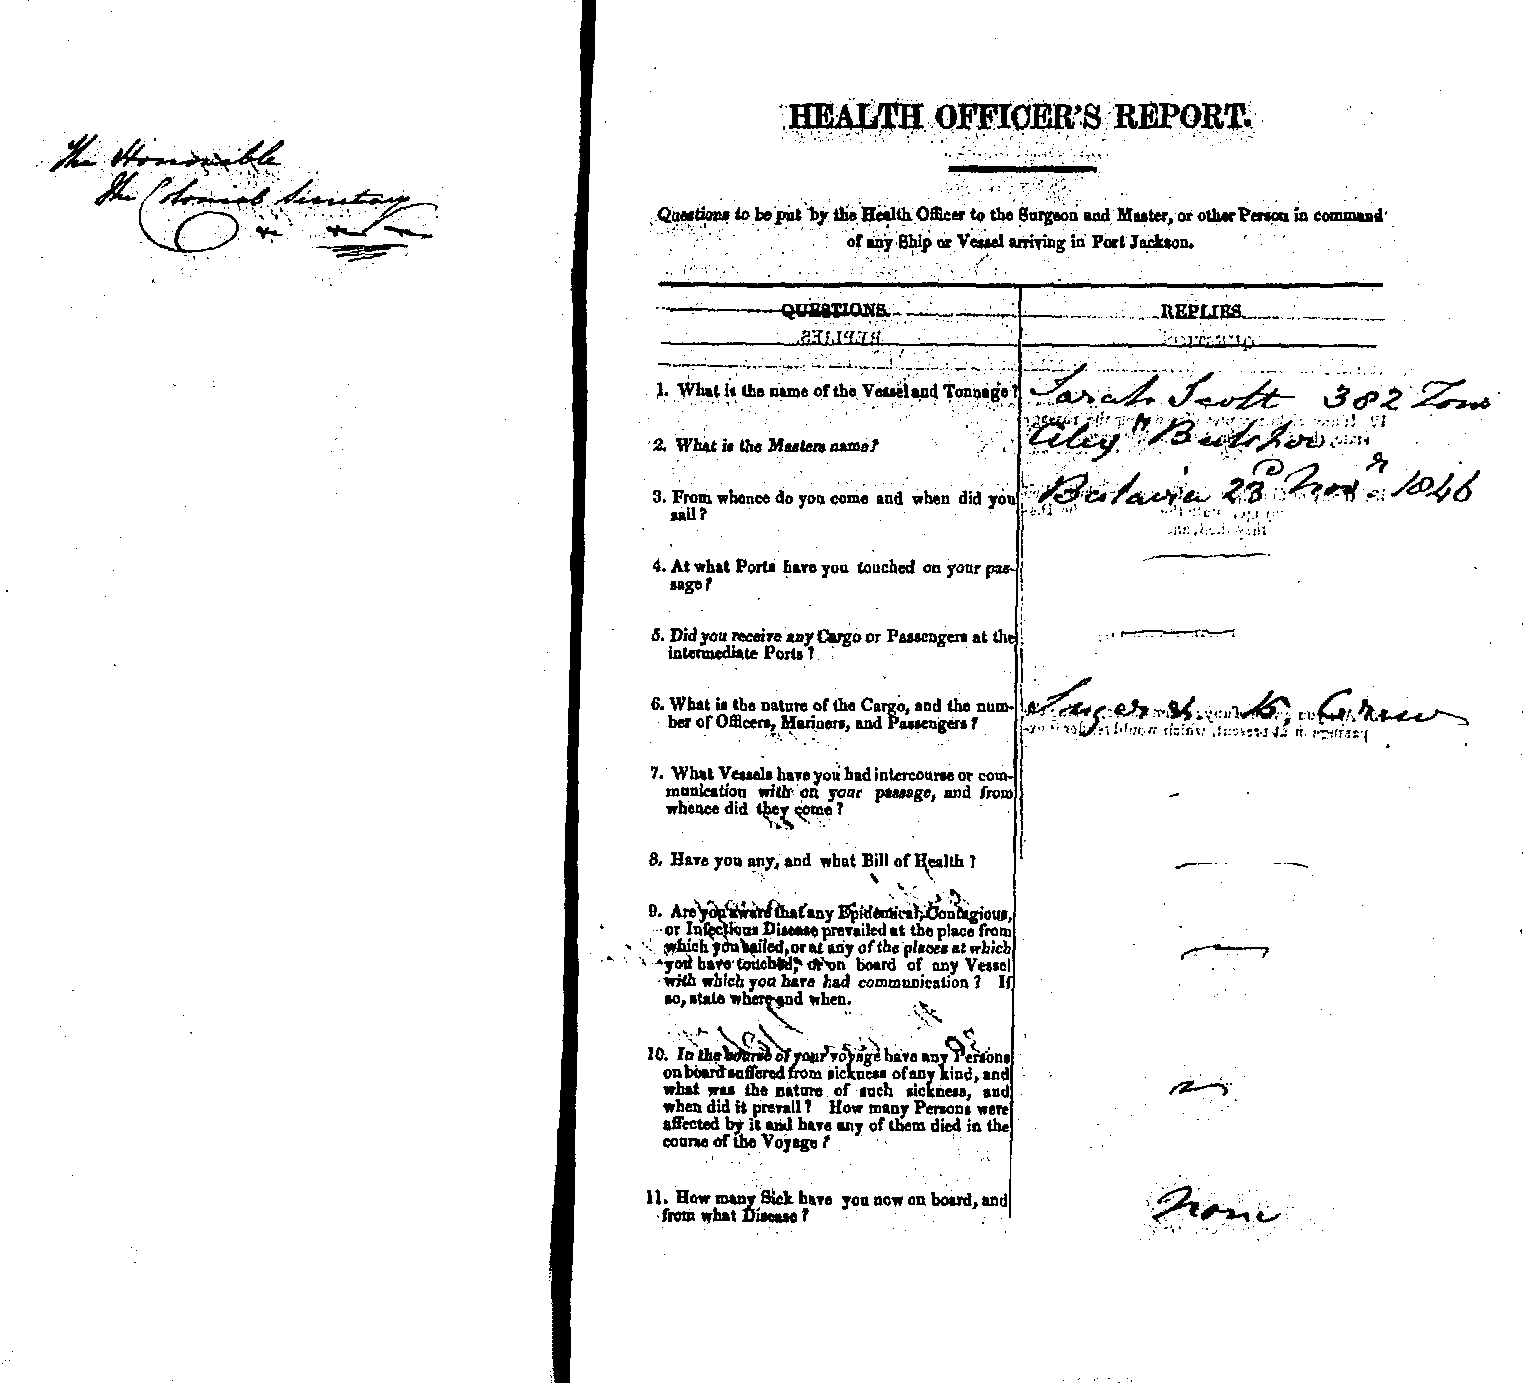 The Honorable
The Colonial Secretary
HEALTH OFFICER'S REPORT.
Questions to be put by the Health Officer to the Surgeon and Master, or other Person in command
of any Ship or Vessel arriving in Port Jackson.
QUESTIONS. REPLIES.
1. What is the name of the Vessel and Tonnage? Sarah Scott 382 Tons
2. What is the Masters name? Alexr
3. From whence do you come and when did you Batavia 23d Novr 1846
sail?
4. At what Ports have you touched on your pas-
sage?
5. Did you receive any Cargo or Passengers at the
intermediate Ports?
6. What is the nature of the Cargo, and the num- Sugar &
ber of Officers, Mariners, and Passengers?
7. What Vessels have you had intercourse or com-
munication with on your passage, and from
whence did they come?
8. Have you any, and what Bill of Health?
9. Are you aware that any Epidemical, Contagious,
or Infectious Disease prevailed at the place from
which you sailed, or at any of the places at which
you have touched, or on board of any Vessel
with which you have had communication? If
so, state where and when.
10. In the course of your voyage have any Persons
on board suffered from sickness of any kind, and
what was the nature of such sickness, and
when did it prevail? How many Persons were
affected by it and have any of them died in the
course of the Voyage?
11. How many Sick have you now on board, and None
from what Disease?